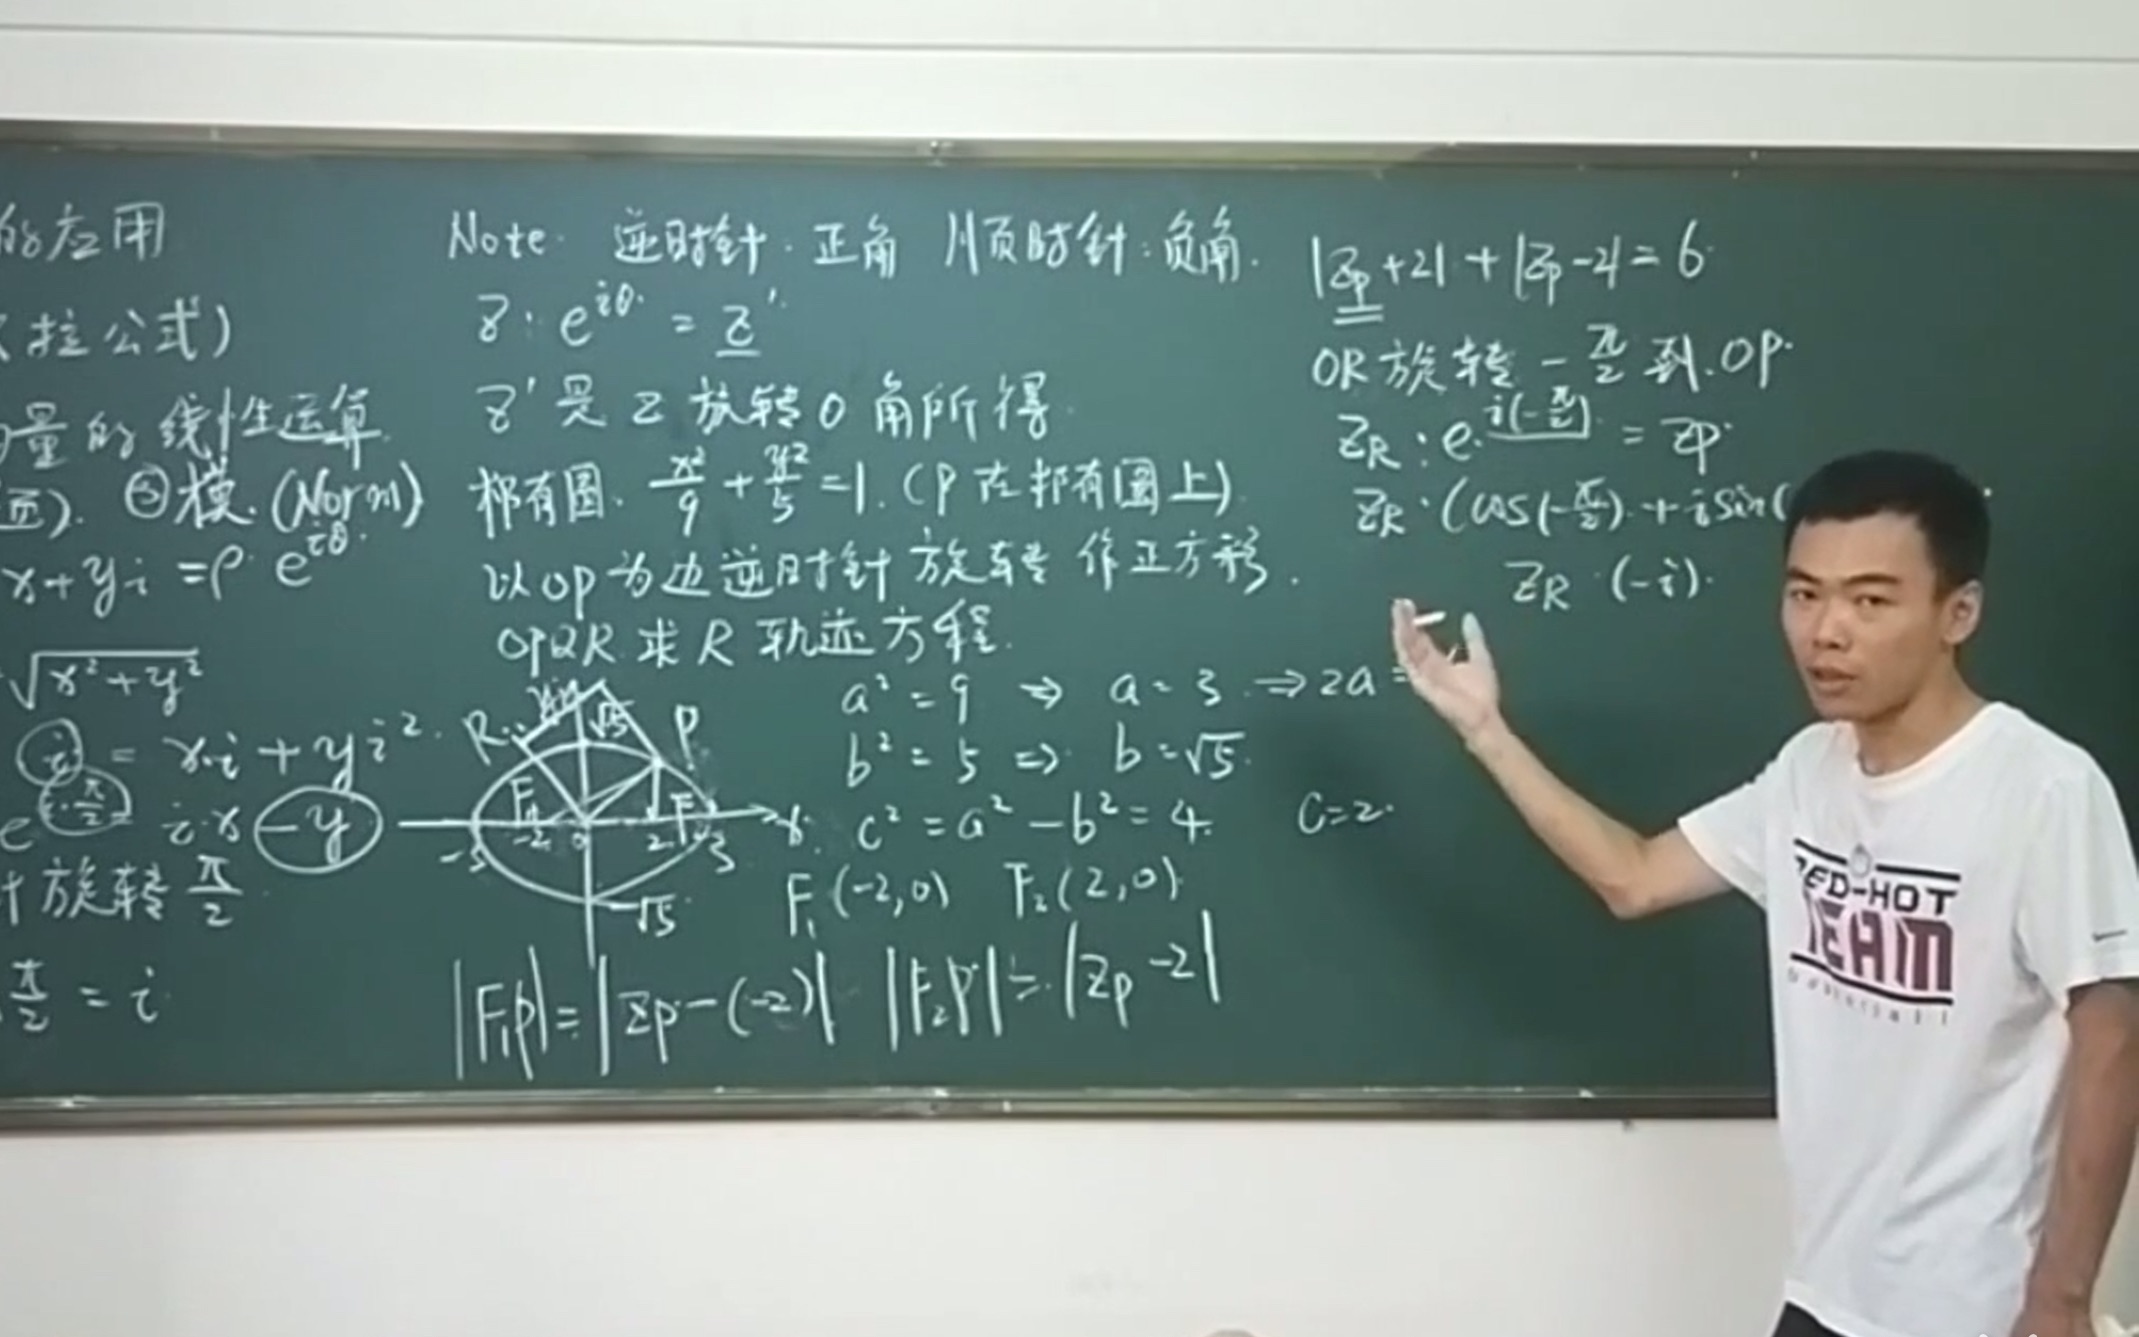 的应用
拉公式)
量的线性运算
②模.(Norm)
x+yi=ρ·e^{iθ}.
√x²+y²
i = x·i + yi².
e^{i·π/2} i·x -y
针旋转 π/2
π/2 = i
Note: 逆时针:正角 顺时针:负角.
Z·e^{iθ} = Z'.
Z'是Z旋转θ角所得.
椭圆. x²/9 + y²/5 = 1. (P在椭圆上).
以OP为边逆时针旋转作正方形.
OPQR.求R轨迹方程.
a²=9 ⇒ a=3 ⇒ 2a=
b²=5 ⇒ b=√5.
c²=a²-b²=4. c=2.
F₁(-2,0) F₂(2,0)
R √5 P
F₁ F₂
-3 -2 0 2 3 x
-√5
|F₁P|=|Zp-(-2)| |F₂P|=|Zp-2|
|Zp+2|+|Zp-2|=6
OR旋转-π/2到OP.
Z_R·e^{i(-π/2)}=Zp.
Z_R·(cos(-π/2)+isin(
Z_R·(-i).
RED-HOT
TEAM